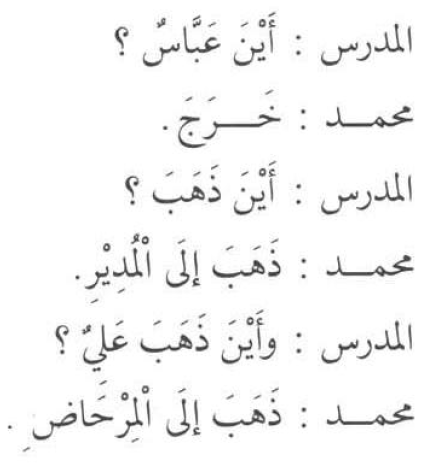 المدرس : أَيْنَ عَبَّاسٌ ؟
محمـــد : خَـــرَجَ .
المدرس : أَيْنَ ذَهَبَ ؟
محمـــد : ذَهَبَ إِلَى الْمُدِيْرِ.
المدرس : وأَيْنَ ذَهَبَ عَلِيٌ ؟
محمـــد : ذَهَبَ إِلَى الْمِرْحَاضِ .